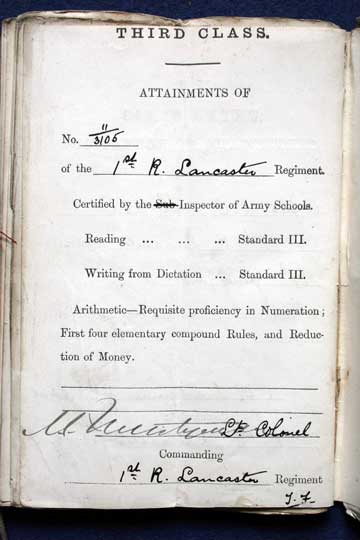 THIRD CLASS.
ATTAINMENTS OF
No. 11/3105
of the 1st R. Lancaster Regiment.
Certified by the Sub-Inspector of Army Schools.
Reading ... ... ... Standard III.
Writing from Dictation ... Standard III.
Arithmetic—Requisite proficiency in Numeration;
First four elementary compound Rules, and Reduc-
tion of Money.
Lt. Colonel
Commanding
1st R. Lancaster Regiment